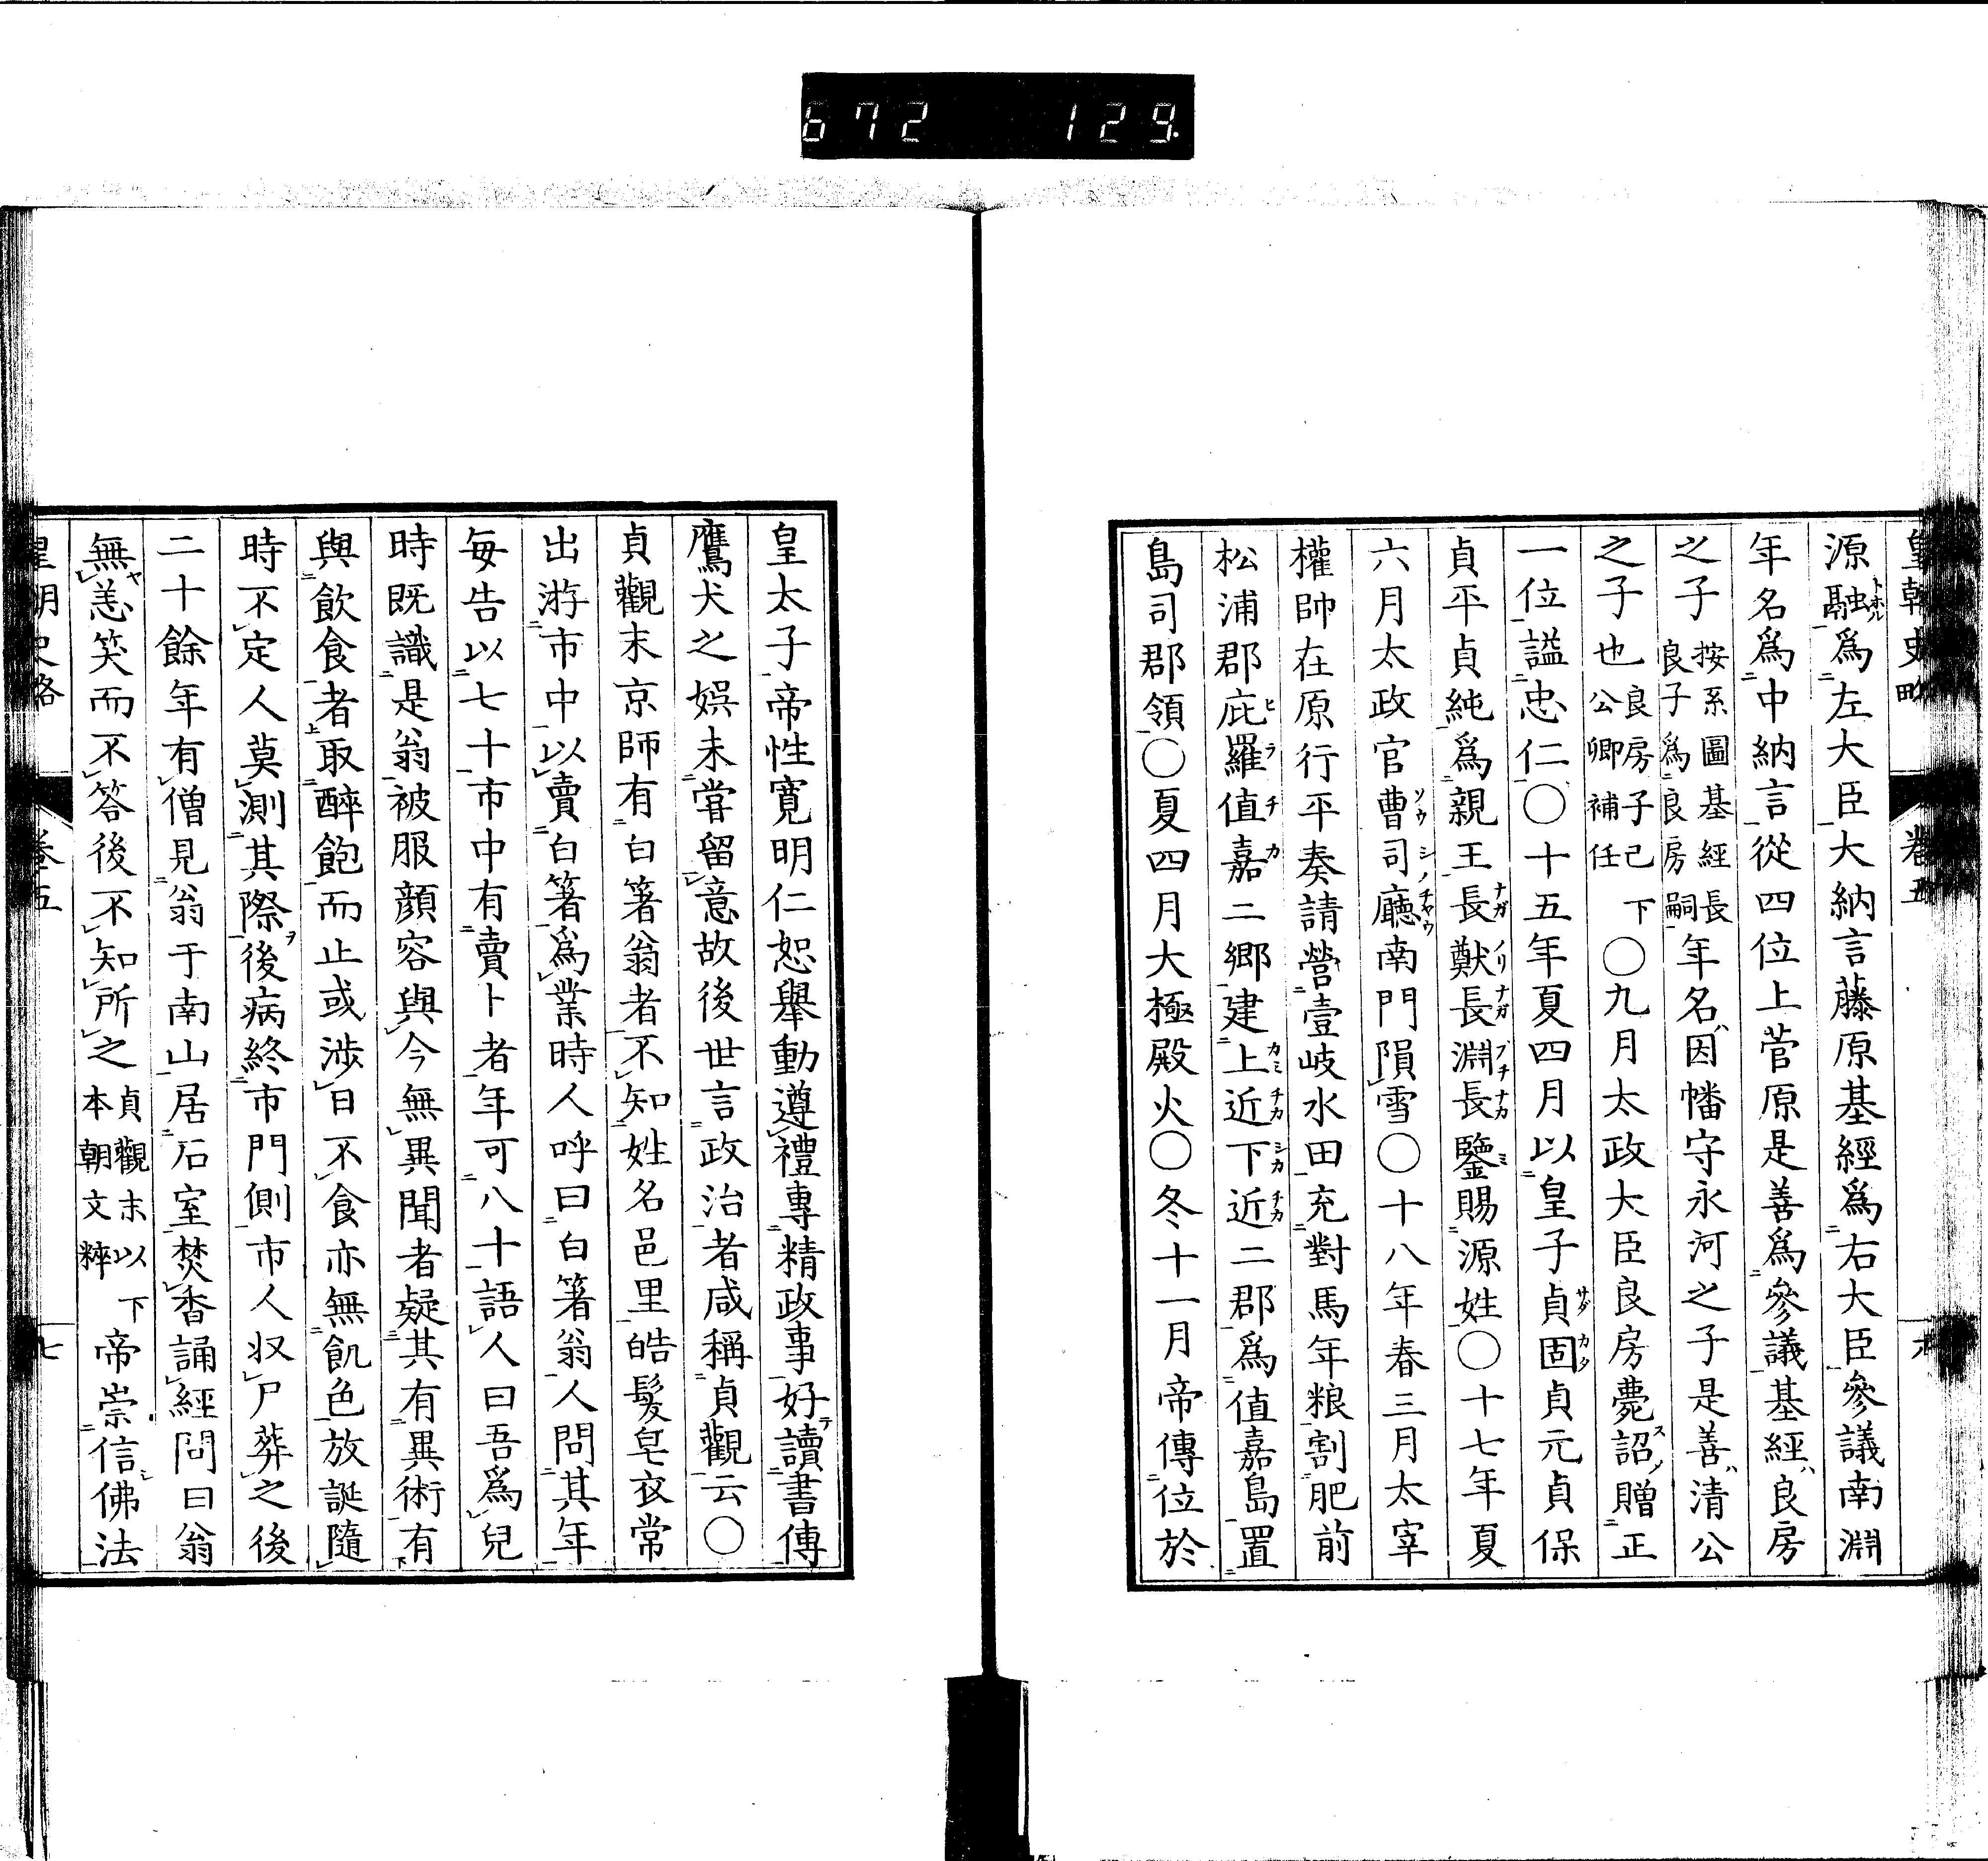 672 129
皇朝史略 卷五 六
源融爲左大臣大納言藤原基經爲右大臣參議南淵
トホル
年名爲中納言從四位上菅原是善爲參議基經良房
之子按系圖基經長良子爲良房嗣年名因幡守永河之子是善清公
之子也良房子已下公卿補任〇九月太政大臣良房薨詔贈正
一位謚忠仁〇十五年夏四月以皇子貞固貞元貞保
サダカタ
貞平貞純爲親王長猷長淵長鑒賜源姓〇十七年夏
六月太政官曹司廳南門隕雪〇十八年春三月太宰
權帥在原行平奏請營壹岐水田充對馬年粮割肥前
松浦郡庇羅値嘉二鄉建上近下近二郡爲値嘉島置
島司郡領〇夏四月大極殿火〇冬十一月帝傳位於
皇太子帝性寬明仁恕舉動遵禮專精政事好讀書傳
鷹犬之娯未嘗留意故後世言政治者咸稱貞觀云〇
貞觀末京師有白箸翁者不知姓名邑里皓髮皂衣常
出游市中以賣白箸爲業時人呼曰白箸翁人問其年
每告以七十市中有賣卜者年可八十語人曰吾爲兒
時既識是翁被服顔容與今無異聞者疑其有異術有
與飲食者取醉飽而止或涉日不食亦無飢色放誕隨
時不定人莫測其際後病終市門側市人収尸葬之後
二十餘年有僧見翁于南山居石室焚香誦經問曰翁
無恙笑而不答後不知所之貞觀末以下本朝文粹帝崇信佛法
皇朝史略 卷五 七